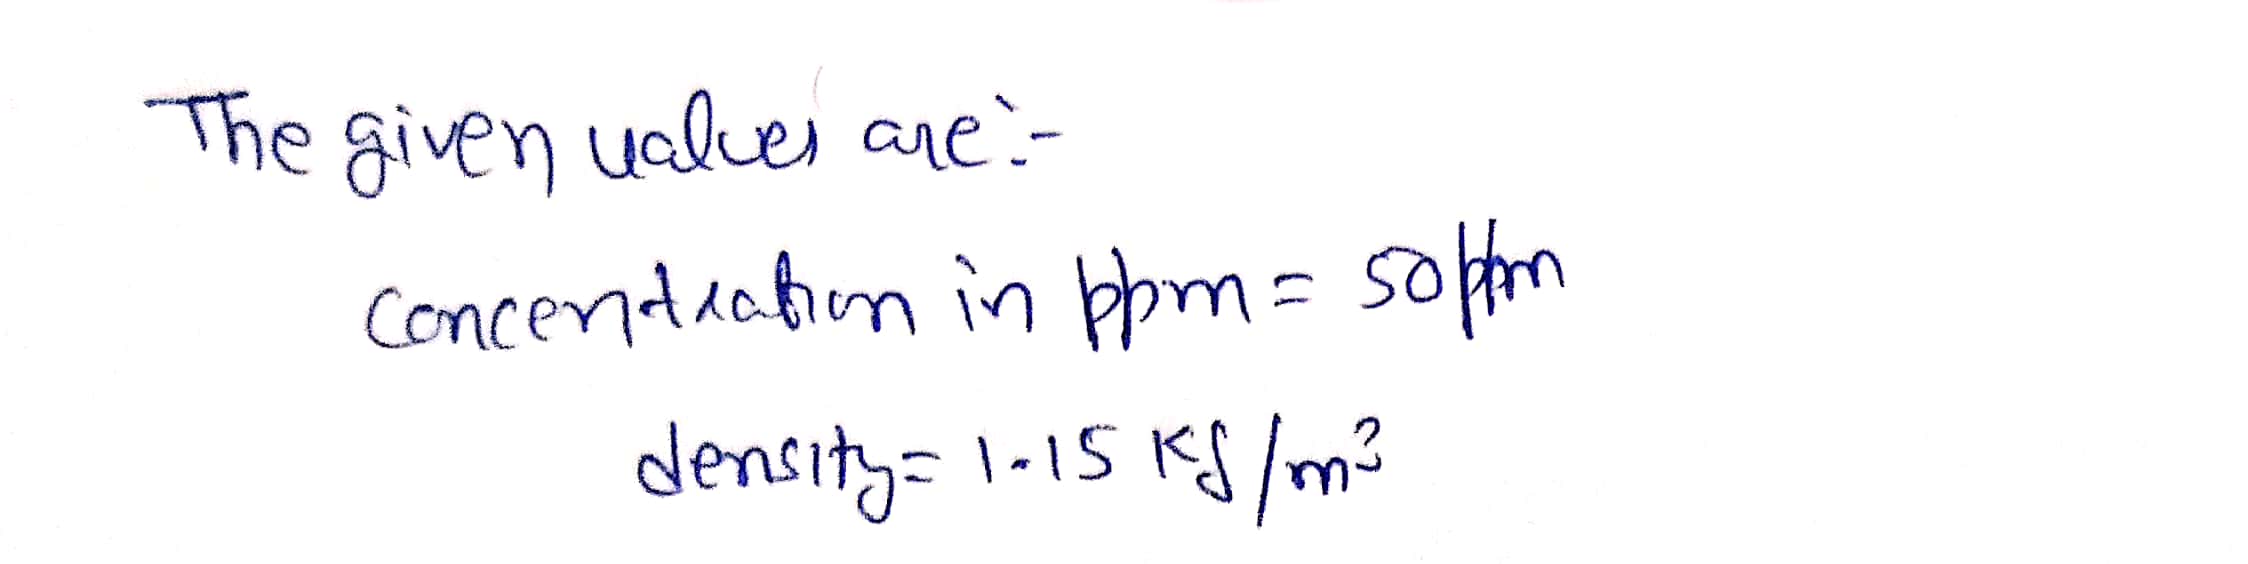 The given values are:-
concentration in ppm = 50 ppm
density = 1.15 Kg/m³